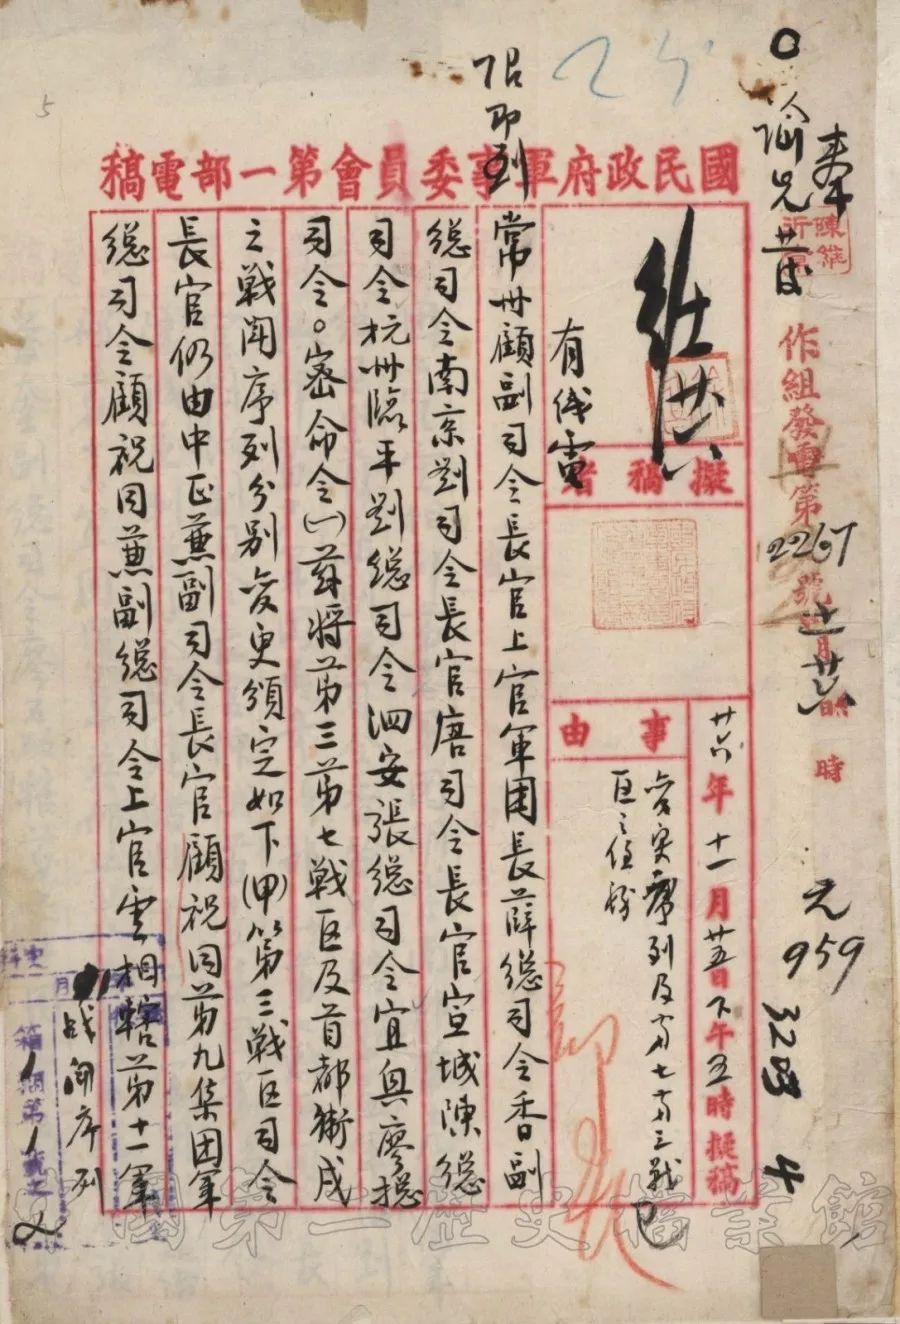 國民政府軍事委員會第一部電稿
限即到
常州顧副司令長官上官軍團長薛總司令香副
總司令南京劉司令長官唐司令長官宣城陳總
司令杭州臨平劉總司令泗安張總司令宜興廖總
司令。密命令(一)茲將第三第七戰区及首都衛戍
之戰鬥序列分別變更頒定如下(甲)第三戰区司令
長官仍由中正兼副司令長官顧祝同第九集团軍
總司令顧祝同兼副總司令上官雲相轄第十一軍
有线電
擬稿者
事由
變更序列及第七第三战
区之任務
廿六年十一月廿五日下午五時擬稿
作組發電第2267號
月
時
元
959
3283
4
战鬥序列
5
中國第二歷史檔案館